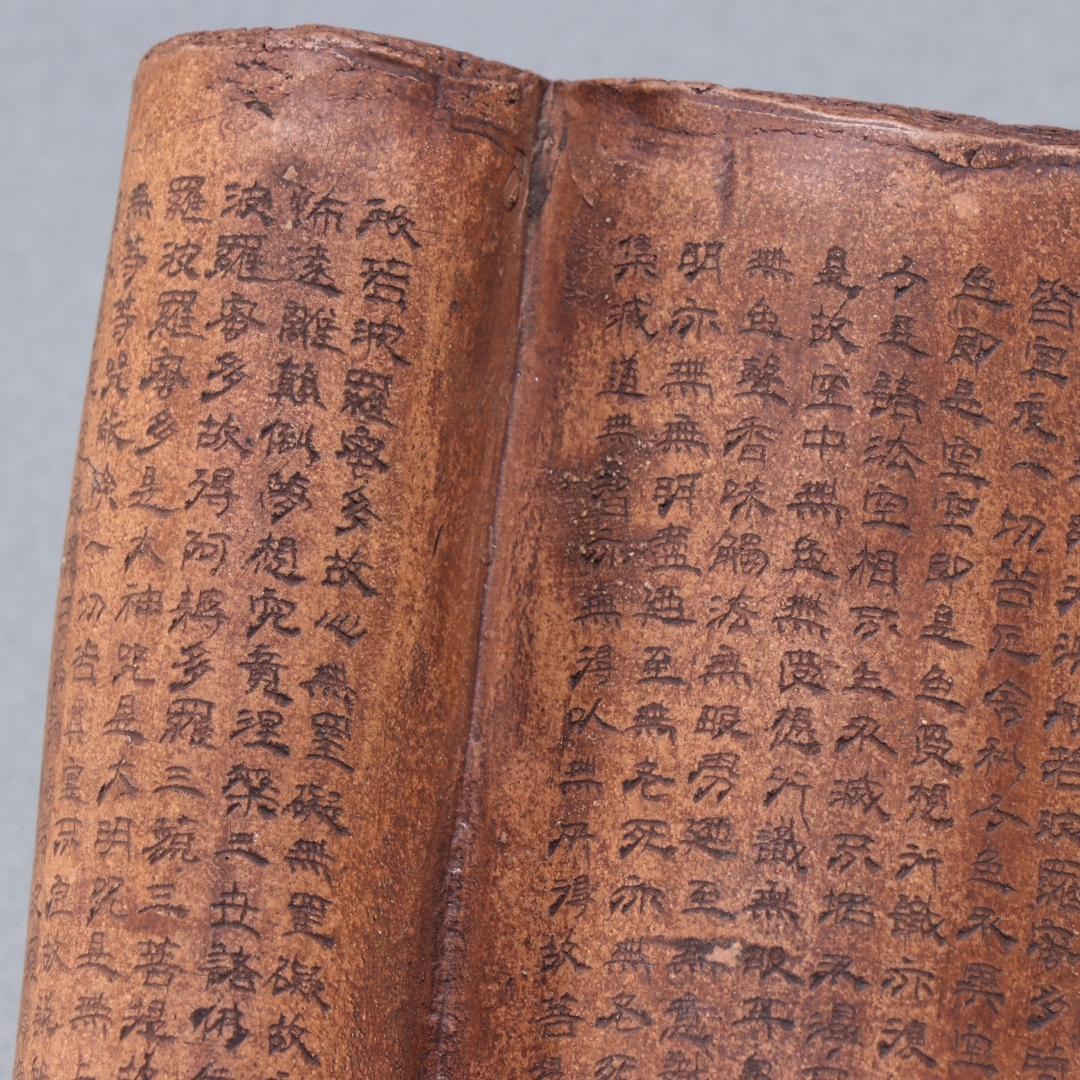 深般若波羅蜜多時
皆空度一切苦厄舍利子色不異空
色即是空空即是色受想行識亦復
子是諸法空相不生不滅不垢不淨
是故空中無色無受想行識無眼耳
無色聲香味觸法無眼界乃至無意
明亦無無明盡乃至無老死亦無老死
集滅道無智亦無得以無所得故菩
般若波羅蜜多故心無罣礙無罣礙故
怖遠離顛倒夢想究竟涅槃三世諸佛
波羅蜜多故得阿耨多羅三藐三菩提
羅波羅蜜多是大神咒是大明咒是無
無等等咒能除一切苦真實不虛故說